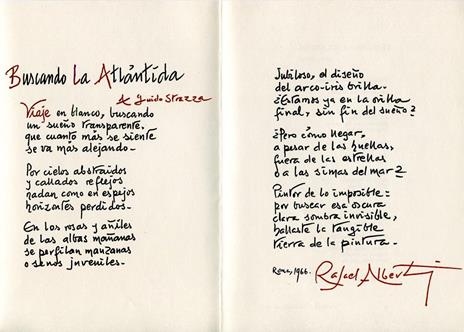 Buscando La Atlántida
A Guido Strazza
Viaje en blanco, buscando
un sueño transparente,
que cuanto más se siente
se va más alejando.
Por cielos abstraídos
y callados reflejos
nadan como en espejos
horizontes perdidos.
En los rosas y añiles
de las altas mañanas
se perfilan manzanas
o senos juveniles.
Jubiloso, el diseño
del arco-iris brilla.
¿Estamos ya en la orilla
final, sin fin del sueño?
¿Pero cómo llegar,
a pesar de las huellas,
fuera de las estrellas
o a las simas del mar?
Pintor de lo imposible:
por buscar esa oscura
clara sombra invisible,
hallaste la tangible
tierra de la pintura.
Roma, 1966.
Rafael Alberti